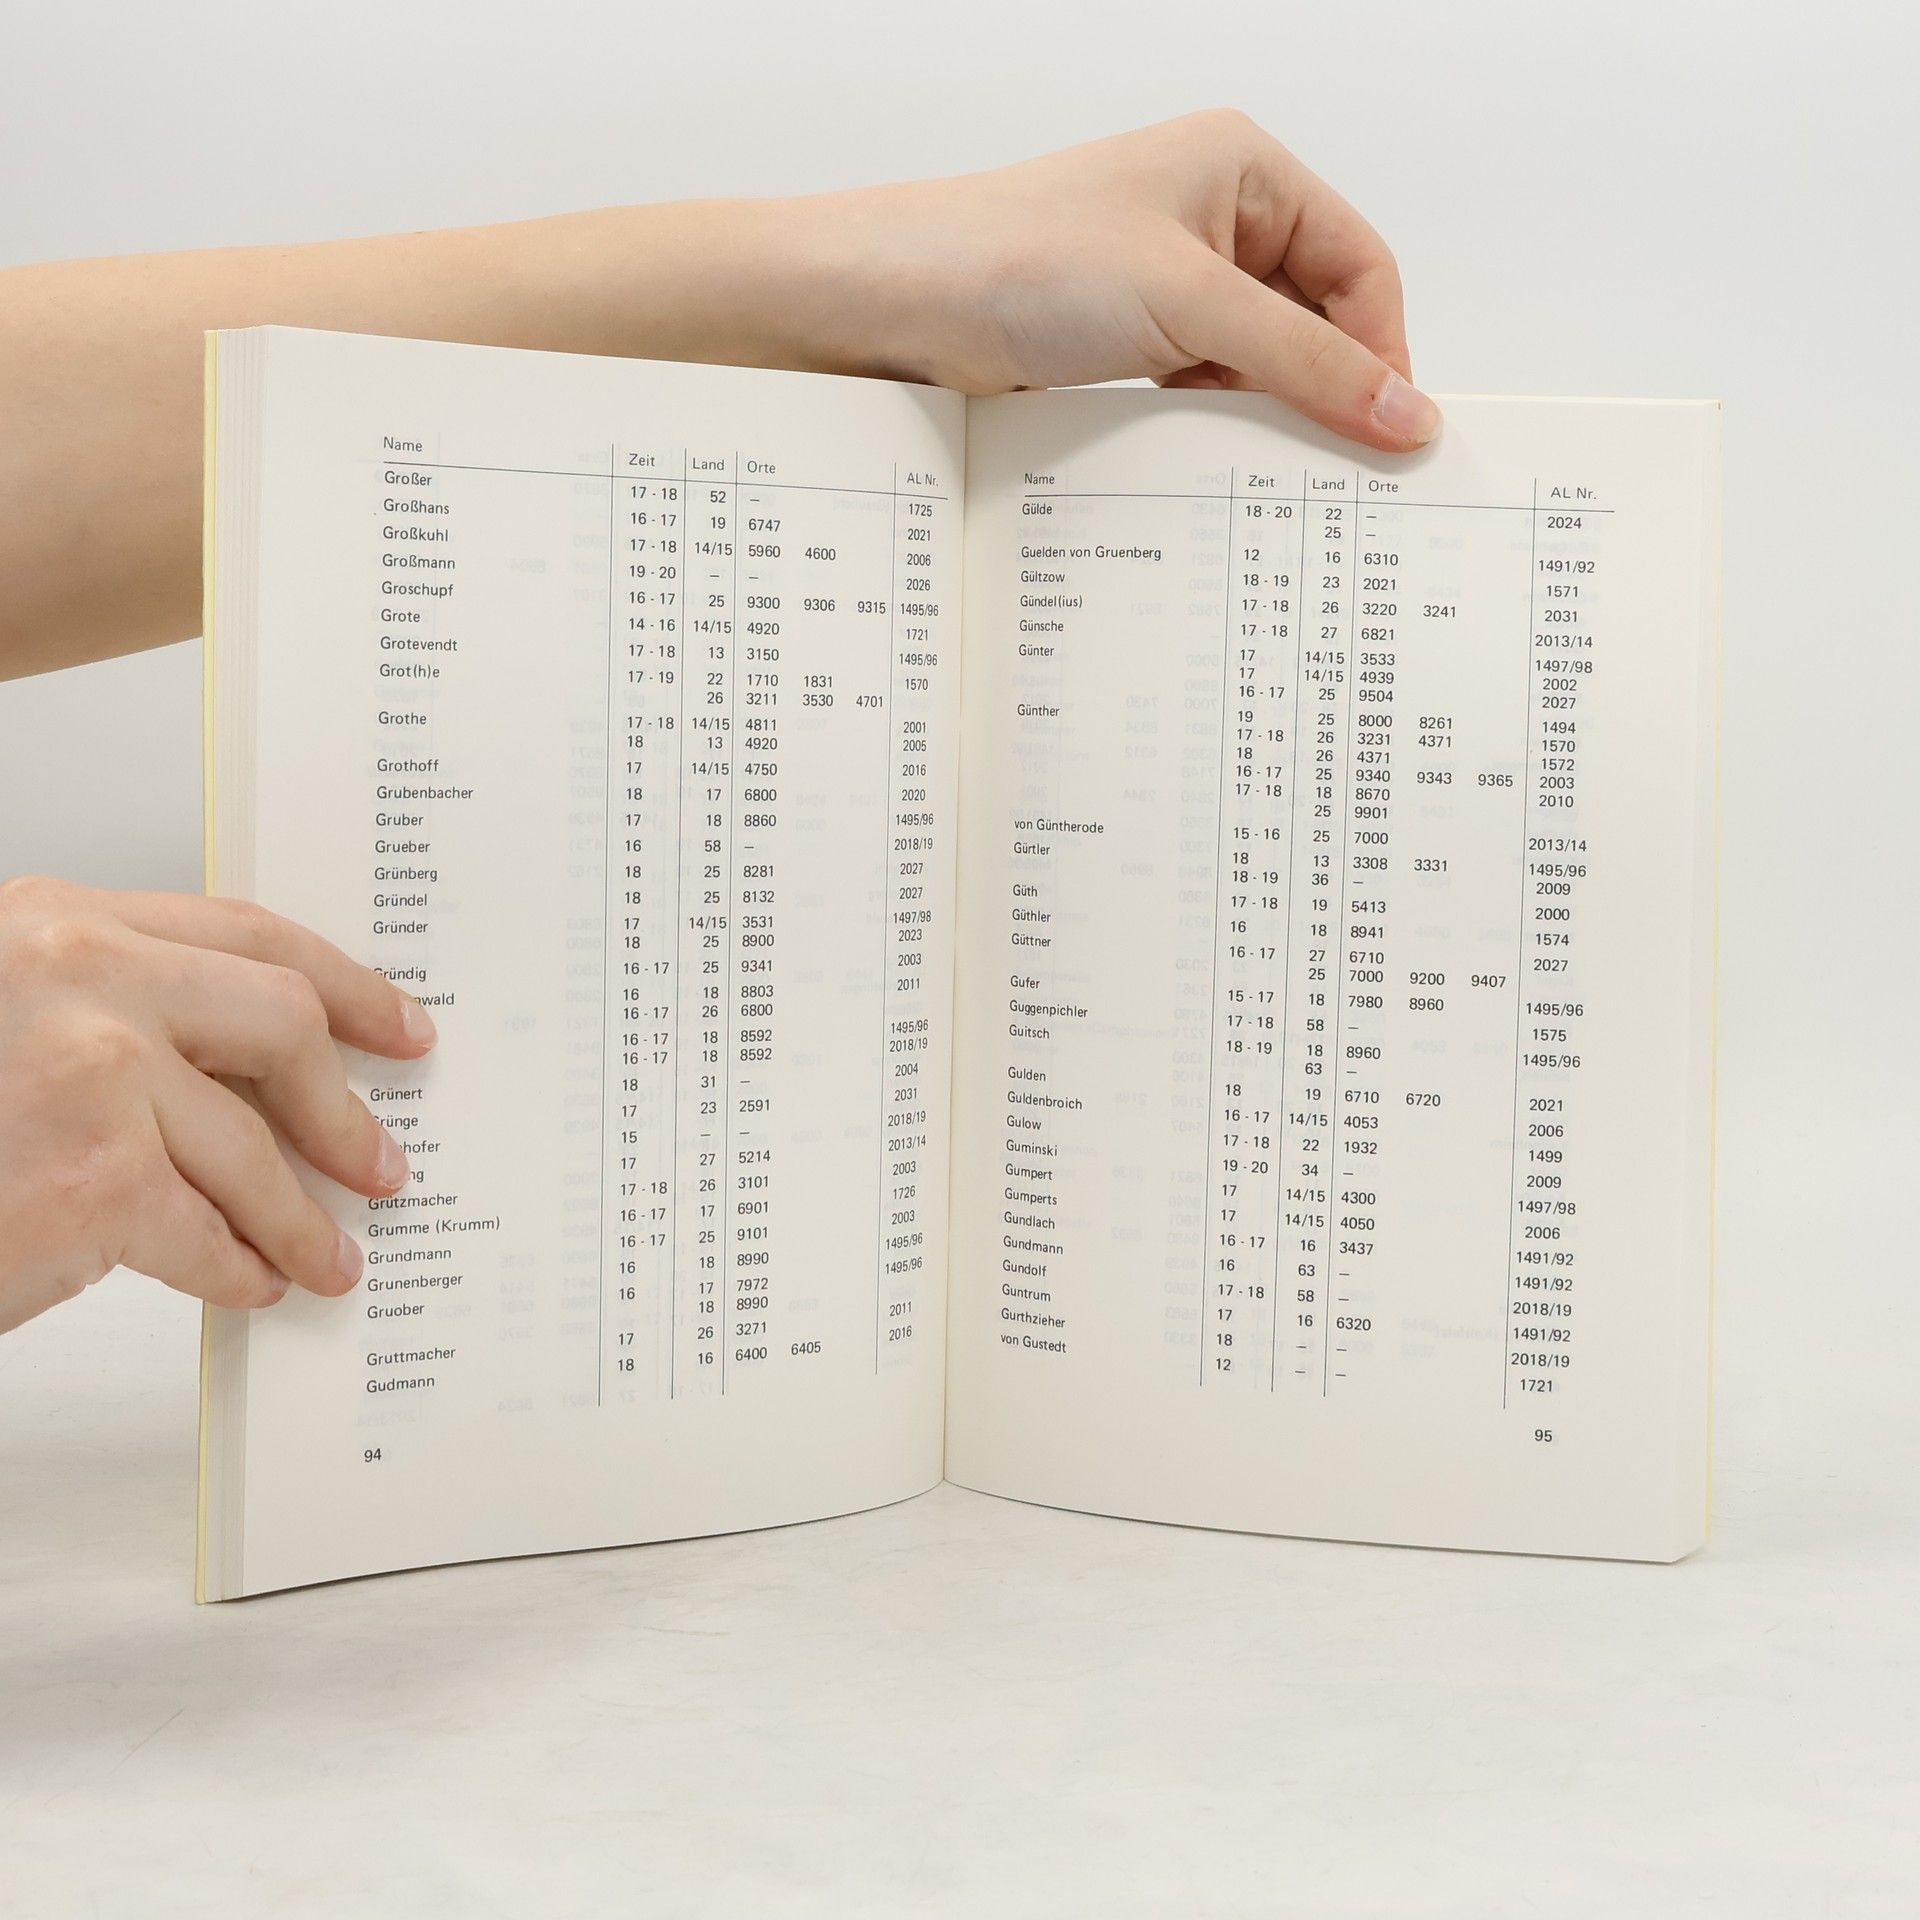 Name Zeit Land Orte AL Nr.
Großer 17 - 18 52 – 1725
Großhans 16 - 17 19 6747 2021
Großkuhl 17 - 18 14/15 5960 4600 2006
Großmann 19 - 20 – – 2026
Groschupf 16 - 17 25 9300 9306 9315 1495/96
Grote 14 - 16 14/15 4920 1721
Grotevendt 17 - 18 13 3150 1495/96
Grot(h)e 17 - 19 22 1710 1831 1570
26 3211 3530 4701
Grothe 17 - 18 14/15 4811 2001
18 13 4920 2005
Grothoff 17 14/15 4750 2016
Grubenbacher 18 17 6800 2020
Gruber 17 18 8860 1495/96
Grueber 16 58 – 2018/19
Grünberg 18 25 8281 2027
Gründel 18 25 8132 2027
Gründer 17 14/15 3531 1497/98
18 25 8900 2023
Gründig 16 - 17 25 9341 2003
nwald 16 18 8803 2011
16 - 17 26 6800
16 - 17 18 8592 1495/96
16 - 17 18 8592 2018/19
Grünert 18 31 – 2004
Grünge 17 23 2591 2031
hofer 15 – – 2018/19
ng 17 27 5214 2013/14
Grützmacher 17 - 18 26 3101 2003
Grumme (Krumm) 16 - 17 17 6901 1726
Grundmann 16 - 17 25 9101 2003
Grunenberger 16 18 8990 1495/96
Gruober 16 17 7972 1495/96
18 8990
Gruttmacher 17 26 3271 2011
Gudmann 18 16 6400 6405 2016
94
Name Zeit Land Orte AL Nr.
Gülde 18 - 20 22 – 2024
25 –
Guelden von Gruenberg 12 16 6310 1491/92
Gültzow 18 - 19 23 2021 1571
Gündel(ius) 17 - 18 26 3220 3241 2031
Günsche 17 - 18 27 6821 2013/14
Günter 17 14/15 3533 1497/98
17 14/15 4939 2002
16 - 17 25 9504 2027
Günther 19 25 8000 8261 1494
17 - 18 26 3231 4371 1570
18 26 4371 1572
16 - 17 25 9340 9343 9365 2003
17 - 18 18 8670 2010
25 9901
von Güntherode 15 - 16 25 7000 2013/14
Gürtler 18 13 3308 3331 1495/96
18 - 19 36 – 2009
Güth 17 - 18 19 5413 2000
Güthler 16 18 8941 1574
Güttner 16 - 17 27 6710 2027
25 7000 9200 9407
Gufer 15 - 17 18 7980 8960 1495/96
Guggenpichler 17 - 18 58 – 1575
Guitsch 18 - 19 18 8960 1495/96
63 –
Gulden 18 19 6710 6720 2021
Guldenbroich 16 - 17 14/15 4053 2006
Gulow 17 - 18 22 1932 1499
Guminski 19 - 20 34 – 2009
Gumpert 17 14/15 4300 1497/98
Gumperts 17 14/15 4050 2006
Gundlach 16 - 17 16 3437 1491/92
Gundmann 16 63 – 1491/92
Gundolf 17 - 18 58 – 2018/19
Guntrum 17 16 6320 1491/92
Gurthzieher 18 – – 2018/19
von Gustedt 12 – – 1721
95